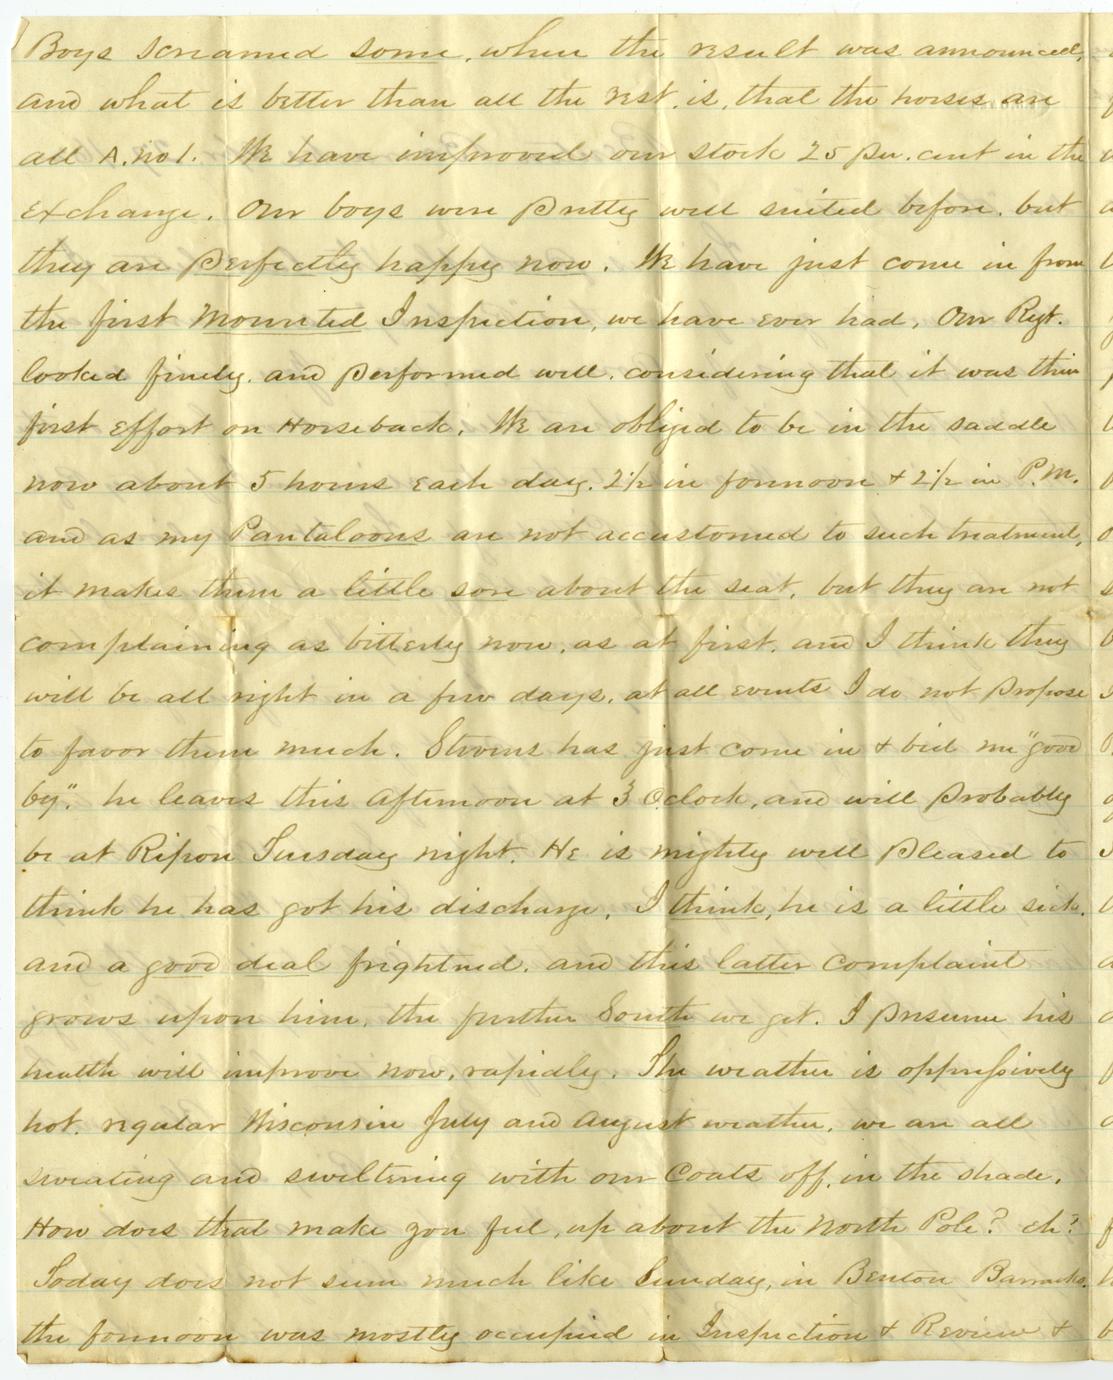 Boys screamed some, when the result was announced,
and what is better than all the rest, is, that the horses are
all A. no 1. We have improved our stock 25 per. cent in the
exchange. Our boys were pretty well suited before, but
they are perfectly happy now. We have just come in from
the first Mounted Inspection, we have ever had, Our Regt.
looked finely, and performed well, considering that it was their
first effort on Horseback. We are obliged to be in the saddle
now about 5 hours each day. 2 1/2 in forenoon & 2 1/2 in P.M.
and as my Pantaloons are not accustomed to such treatment,
it makes them a little sore about the seat, but they are not
complaining as bitterly now, as at first, and I think they
will be all right in a few days, at all events I do not propose
to favor them much. Stevens has just come in & bid me "good
by", he leaves this afternoon at 3 Oclock, and will probably
be at Ripon Tuesday night. He is mighty well pleased to
think he has got his discharge, I think, he is a little sick,
and a good deal frightned, and this latter complaint
grows upon him, the further South we get. I presume his
health will improve now, rapidly. The weather is oppressively
hot, regular Wisconsin July and August weather, we are all
sweating and sweltering with our Coats off, in the shade,
How does that make you feel, up about the North Pole? eh?
Today does not seem much like Sunday, in Benton Barracks,
the forenoon was mostly occupied in Inspection & Review &